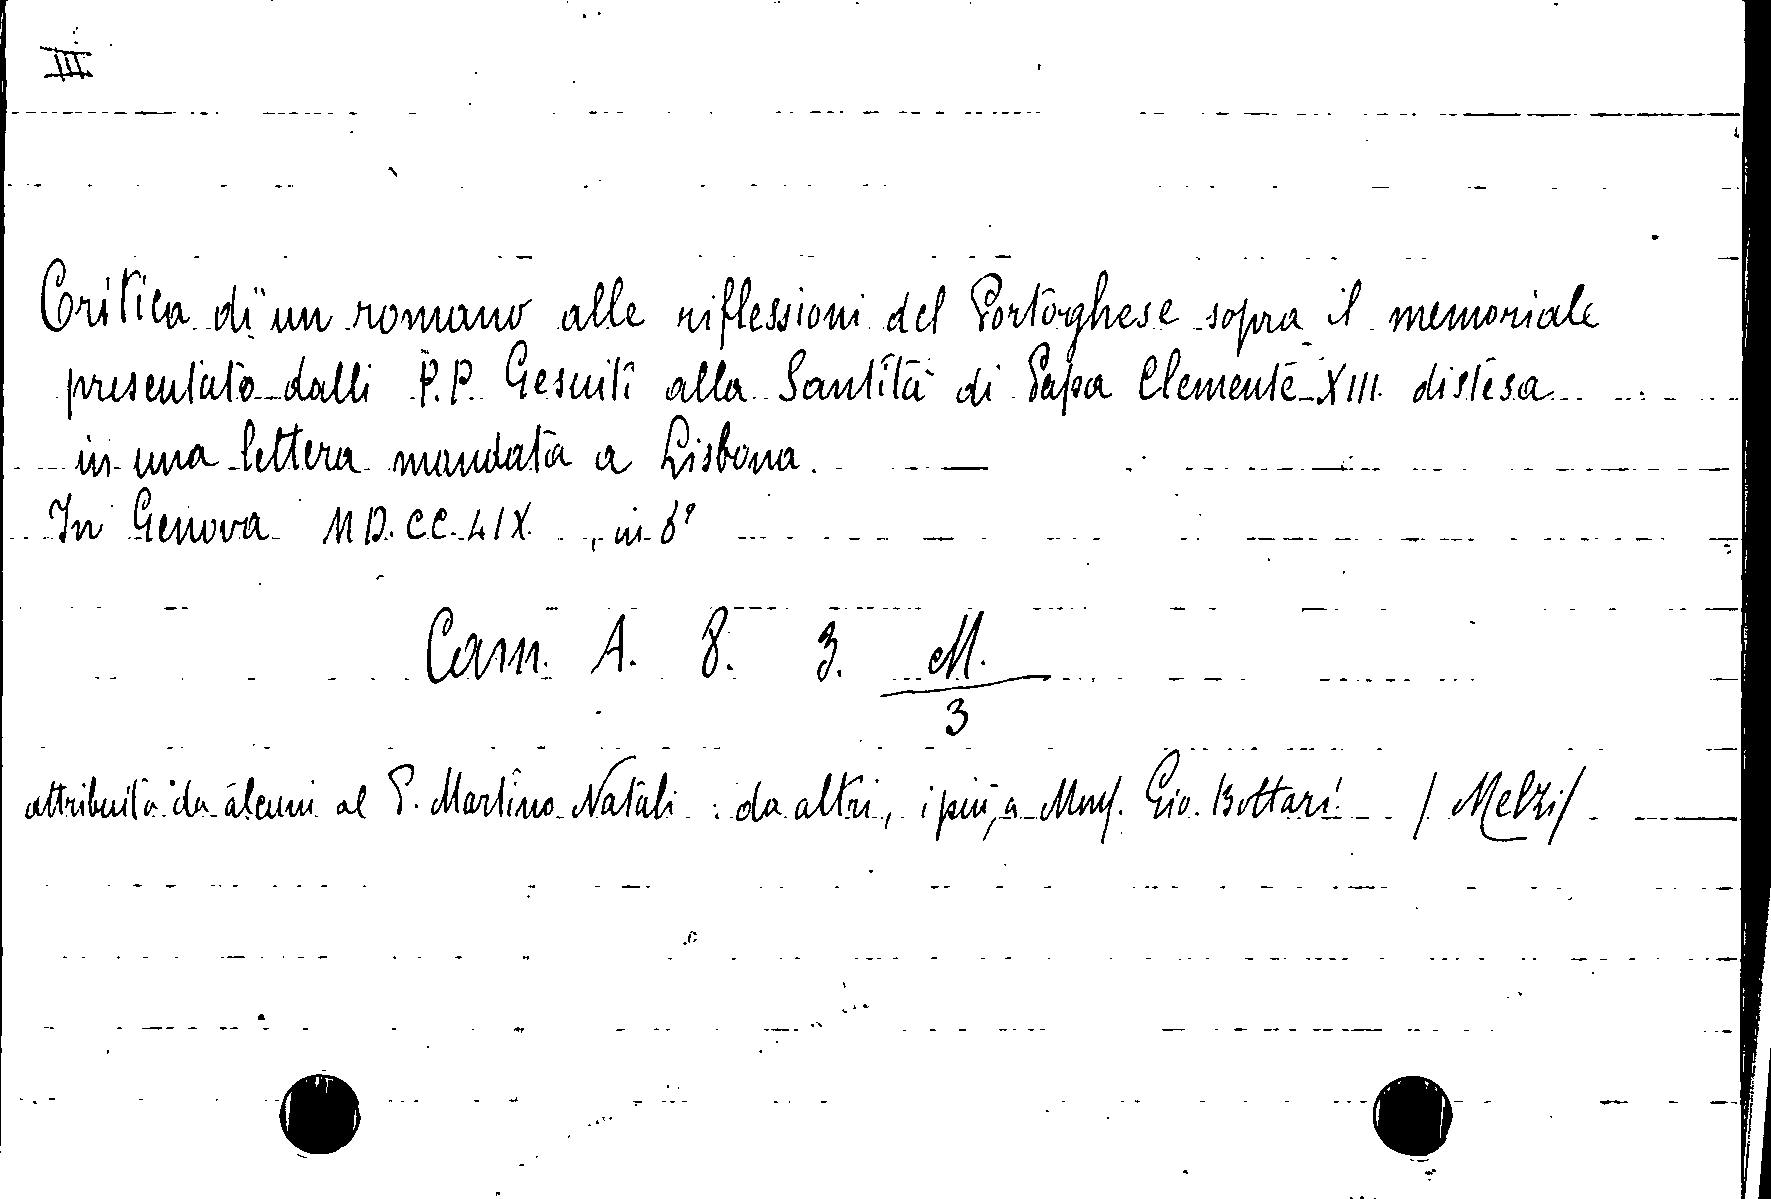 III
Critica di un romano alle riflessioni del Portoghese sopra il memoriale
presentato dalli P.P. Gesuiti alla Santità di Papa Clemente XIII. distesa
in una lettera mandata a Lisbona.
In Genova MD.CC.LIX. , in 8º
Cam. A. 8. 3. M.
3
attribuita da alcuni al P. Martino Natali : da altri, i più, a Mons. Gio. Bottari. / Melzi/